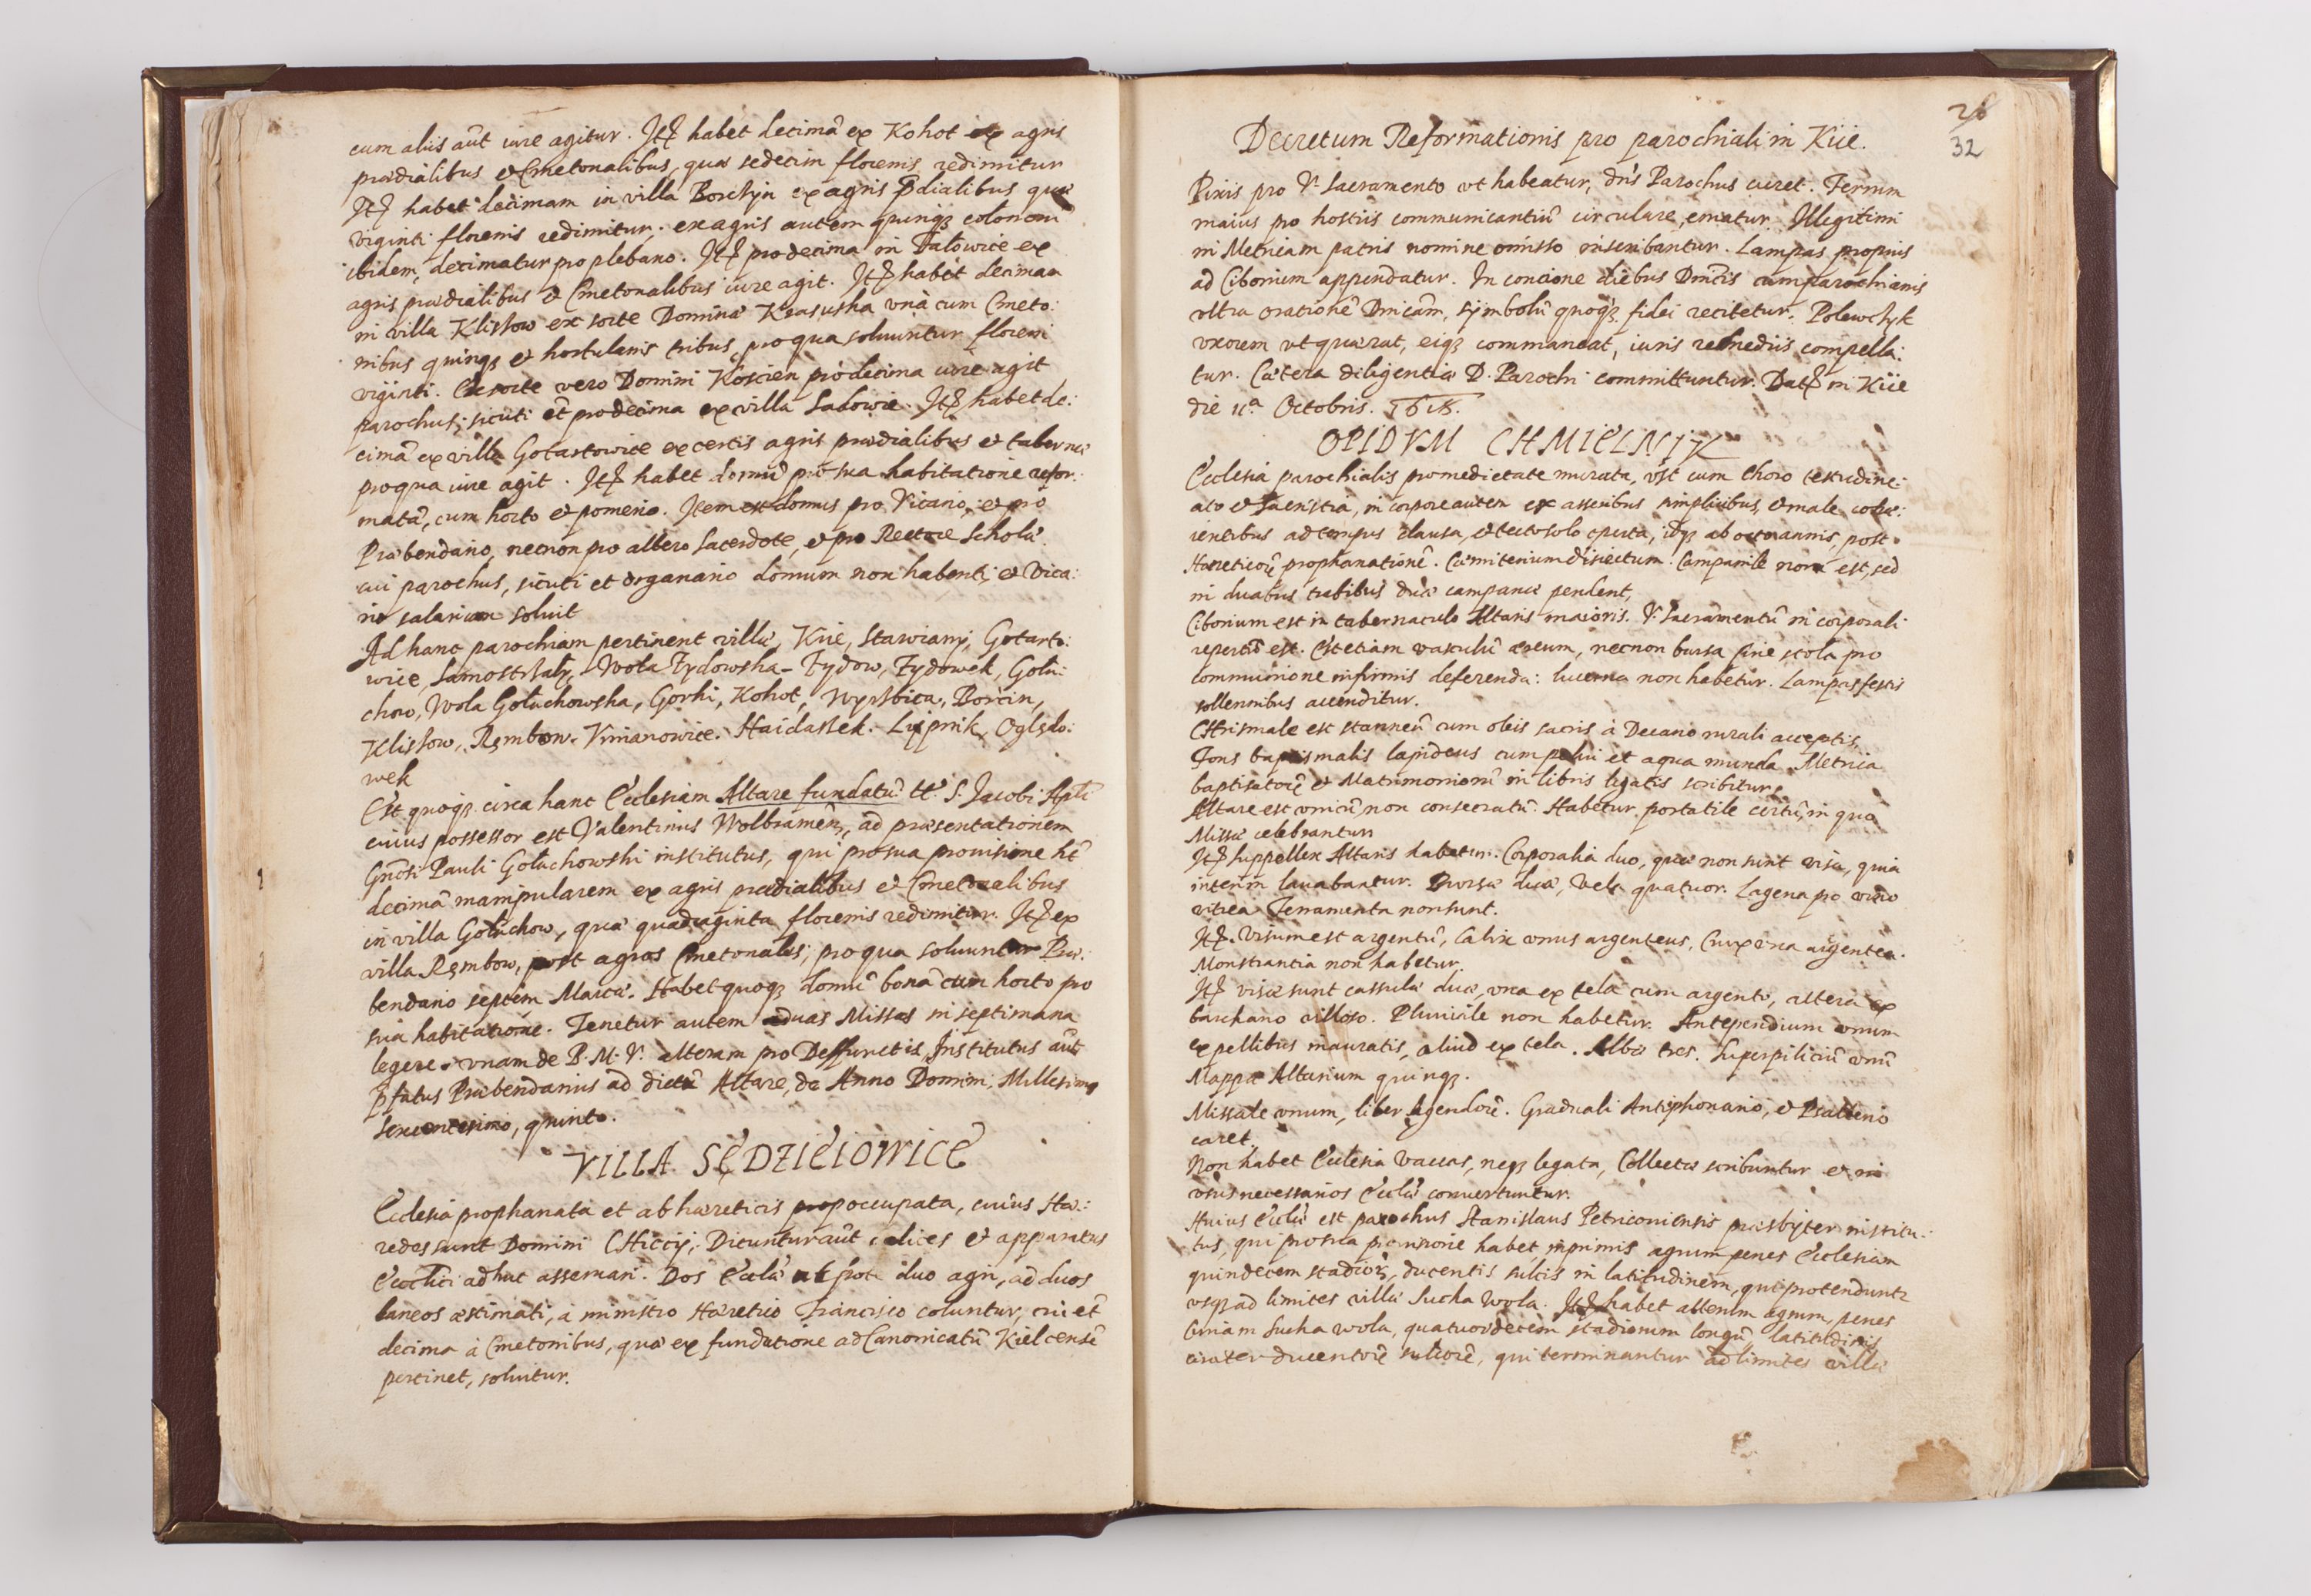 cum aliis aūt iure agitur. Itē habet decimā ex Kohot ex agris
prædialibus et Cmetonalibus, quæ sedecim florenis redimitur
Itē habet decimam in villa Borchÿn ex agris p̄dialibus quæ
viginti florenis redimitur, ex agris autem quinqȝ colonorū
ibidem, decimatur pro plebano. Itē pro decima in Falowice ex
agris prædialibus et Cmetonalibus iure agit. Itē habet decimam
in villa Klissow ex sorte Dominæ Krasuska vnà cum Cmeto:
nibus quinqȝ et hortulanis tribus, pro qua soluuntur floreni
viginti. Ex sorte vero Domini Koscien pro decima iure agit
parochus, sicuti et̄ pro decima ex villa Sadowie. Itē habet de:
cimā ex villa Gotartowice ex certis agris prædialibus et tabernæ
pro qua iure agit. Itē habet domū pro sua habitatione refor:
matā, cum horto et pomerio. Item est domus pro Vicario, et pro
Præbendario, necnon pro altero Sacerdote, et pro Rectore Scholæ
cui parochus, sicuti et organario domum non habenti, et Vica:
rio salarium soluit
Ad hanc parochiam pertinent villæ, Kiie, Stawiany, Gotarto:
wice, Samostrzaly, Wola Zydowska, Zydow, Zydowek, Golu:
chow, Wola Goluchowska, Gorki, Kohot, Wyrzbica, Borcin,
Klissow, Rębow, Vmianowice. Haidaszek. Lypnik, Oględo:
wek
Est quoqȝ circa hanc Ecclesiam Altare fundatū tt. S. Jacobi Apli
cuius possessor est Valentinus Wolbramen, ad præsentationem
Gn̄osi Pauli Goluchowski institutus, qui pro sua prouisione ht̄
decimā manipularem ex agris prædialibus et Cmetonalibus
in villa Goluchow, quæ quadraginta florenis redimitur. Itē ex
villa Rębow, post agros Cmetonales, pro qua soluuntur Præ:
bendario septem Marcæ. Habet quoqȝ domū bonā cum horto pro
sua habitatione. Tenetur autem duas Missas in septimana
legere, vnam de B. M. V. alteram pro Deffunctis, Institutus aūt
p̄fatus Præbendarius ad dictū Altare, de Anno Domini, Millesimo
Sexcentesimo, quinto.
VILLA SĘDZIEIOWICE
Ecclesia prophanata et ab hæreticis occupata, cuius Hæ:
redes sunt Domini Chiccÿ. Dicuntur aūt calices et apparatus
Ecclīci adhuc asseruari. Dos Ecclæ ut pote duo agri, ad duos
laneos æstimati, a ministro Hæretico Francisco coluntur, cui et̄
decima à Cmetonibus, quæ ex fundatione ad Canonicatū Kielcensē
pertinet, soluitur.
28
32
Decretum Reformationis pro parochiali in Kiie.
Pixis pro V. Sacramento vt habeatur, dn̄s Parochus curet. Ferrum
maius pro hostiis communicantiū circulare, ematur. Illegitimi
in Metricam patris nomine omisso inscribantur. Lampas propius
ad Ciborium appendatur. In concione diebus Dnīcis cum parochianis
vltra orationē Dnicam, sÿmbolū quoqȝ fidei recitetur. Polewczyk
vxorem vt quærat, eiqȝ commaneat, iuris remediis compella:
tur. Cætera diligentiæ D. Parochi committuntur. Datū in Kiie
die 11ª Octobris. 1618.
OPIDVM CHMIELNIK
Ecclesia parochialis pro medietate murata, vst cum Choro testudine:
ato et Sacristia, in corpore autem ex asseribus simplicibus, et male cohæ:
rentibus ad tempus clausa, et tecto solo cperta, idqȝ ab octo annis, post
Hæreticorū prophanationē. Cæmiterium disiectum. Campanile non est, sed
in duabus trabibus duæ campanæ pendent,
Ciborium est in tabernaculo Altaris maioris. V. Sacramentū in corporali
repertū est. Est etiam vasculū æreum, necnon bursa sine stola pro
communione infirmis deferenda: lucerna non habetur. Lampas festis
sollennibus accenditur.
Chrismale est stanneū cum oleis sacris à Decano rurali acceptis,
Fons baptismalis lapideus cum pelui et aqua munda. Metrica
baptisatorū et Matrimoniorū in libris ligatis scribitur,
Altare est vnicū, non consecratū. Habetur portatile certū, in quo
Missæ celebrantur
Itē suppellex Altaris habetur. Corporalia duo, quæ non sunt visa, quia
interim lauabantur. Bursæ duæ, Vela quatuor. Lagena pro vino
vitrea. Ferramenta non sunt.
Itē. Visum est argentū, Calix vnus argenteus, Crux vna argentea.
Monstrantia non habetur.
Itē visæ sunt cassulæ duæ, vna ex tela cum argento, altera ex
barchano villoso. Pluuiale non habetur. Antependium vnum
ex pellibus inauratis, aliud ex tela. Albæ tres. Superpiliciū vnū
Mappæ Altarium quinqȝ.
Missale vnum, liber Agendorū. Graduali Antiphonario, et Psalterio
caret.
Non habet Ecclesia Vaccas, neqȝ legata, Collectæ scribuntur et in
vsus necessarios Ecclæ conuertuntur.
Huius Ecclæ est parochus Stanislaus Petriconiensis præsbyter institu:
tus, qui pro sua prouisione habet inprimis agrum penes Ecclesiam
quindecem stadiorȝ, ducentis sulcis in latitudinem, qui protenduntr
vsqȝ ad limites villæ Sucha Wola. Itē habet alterum agrum, penes
Sucha wola, quatuordecem stadiorum longū latitudinis
circiter ducentorū sulcorū, qui terminantur ad limites villæ